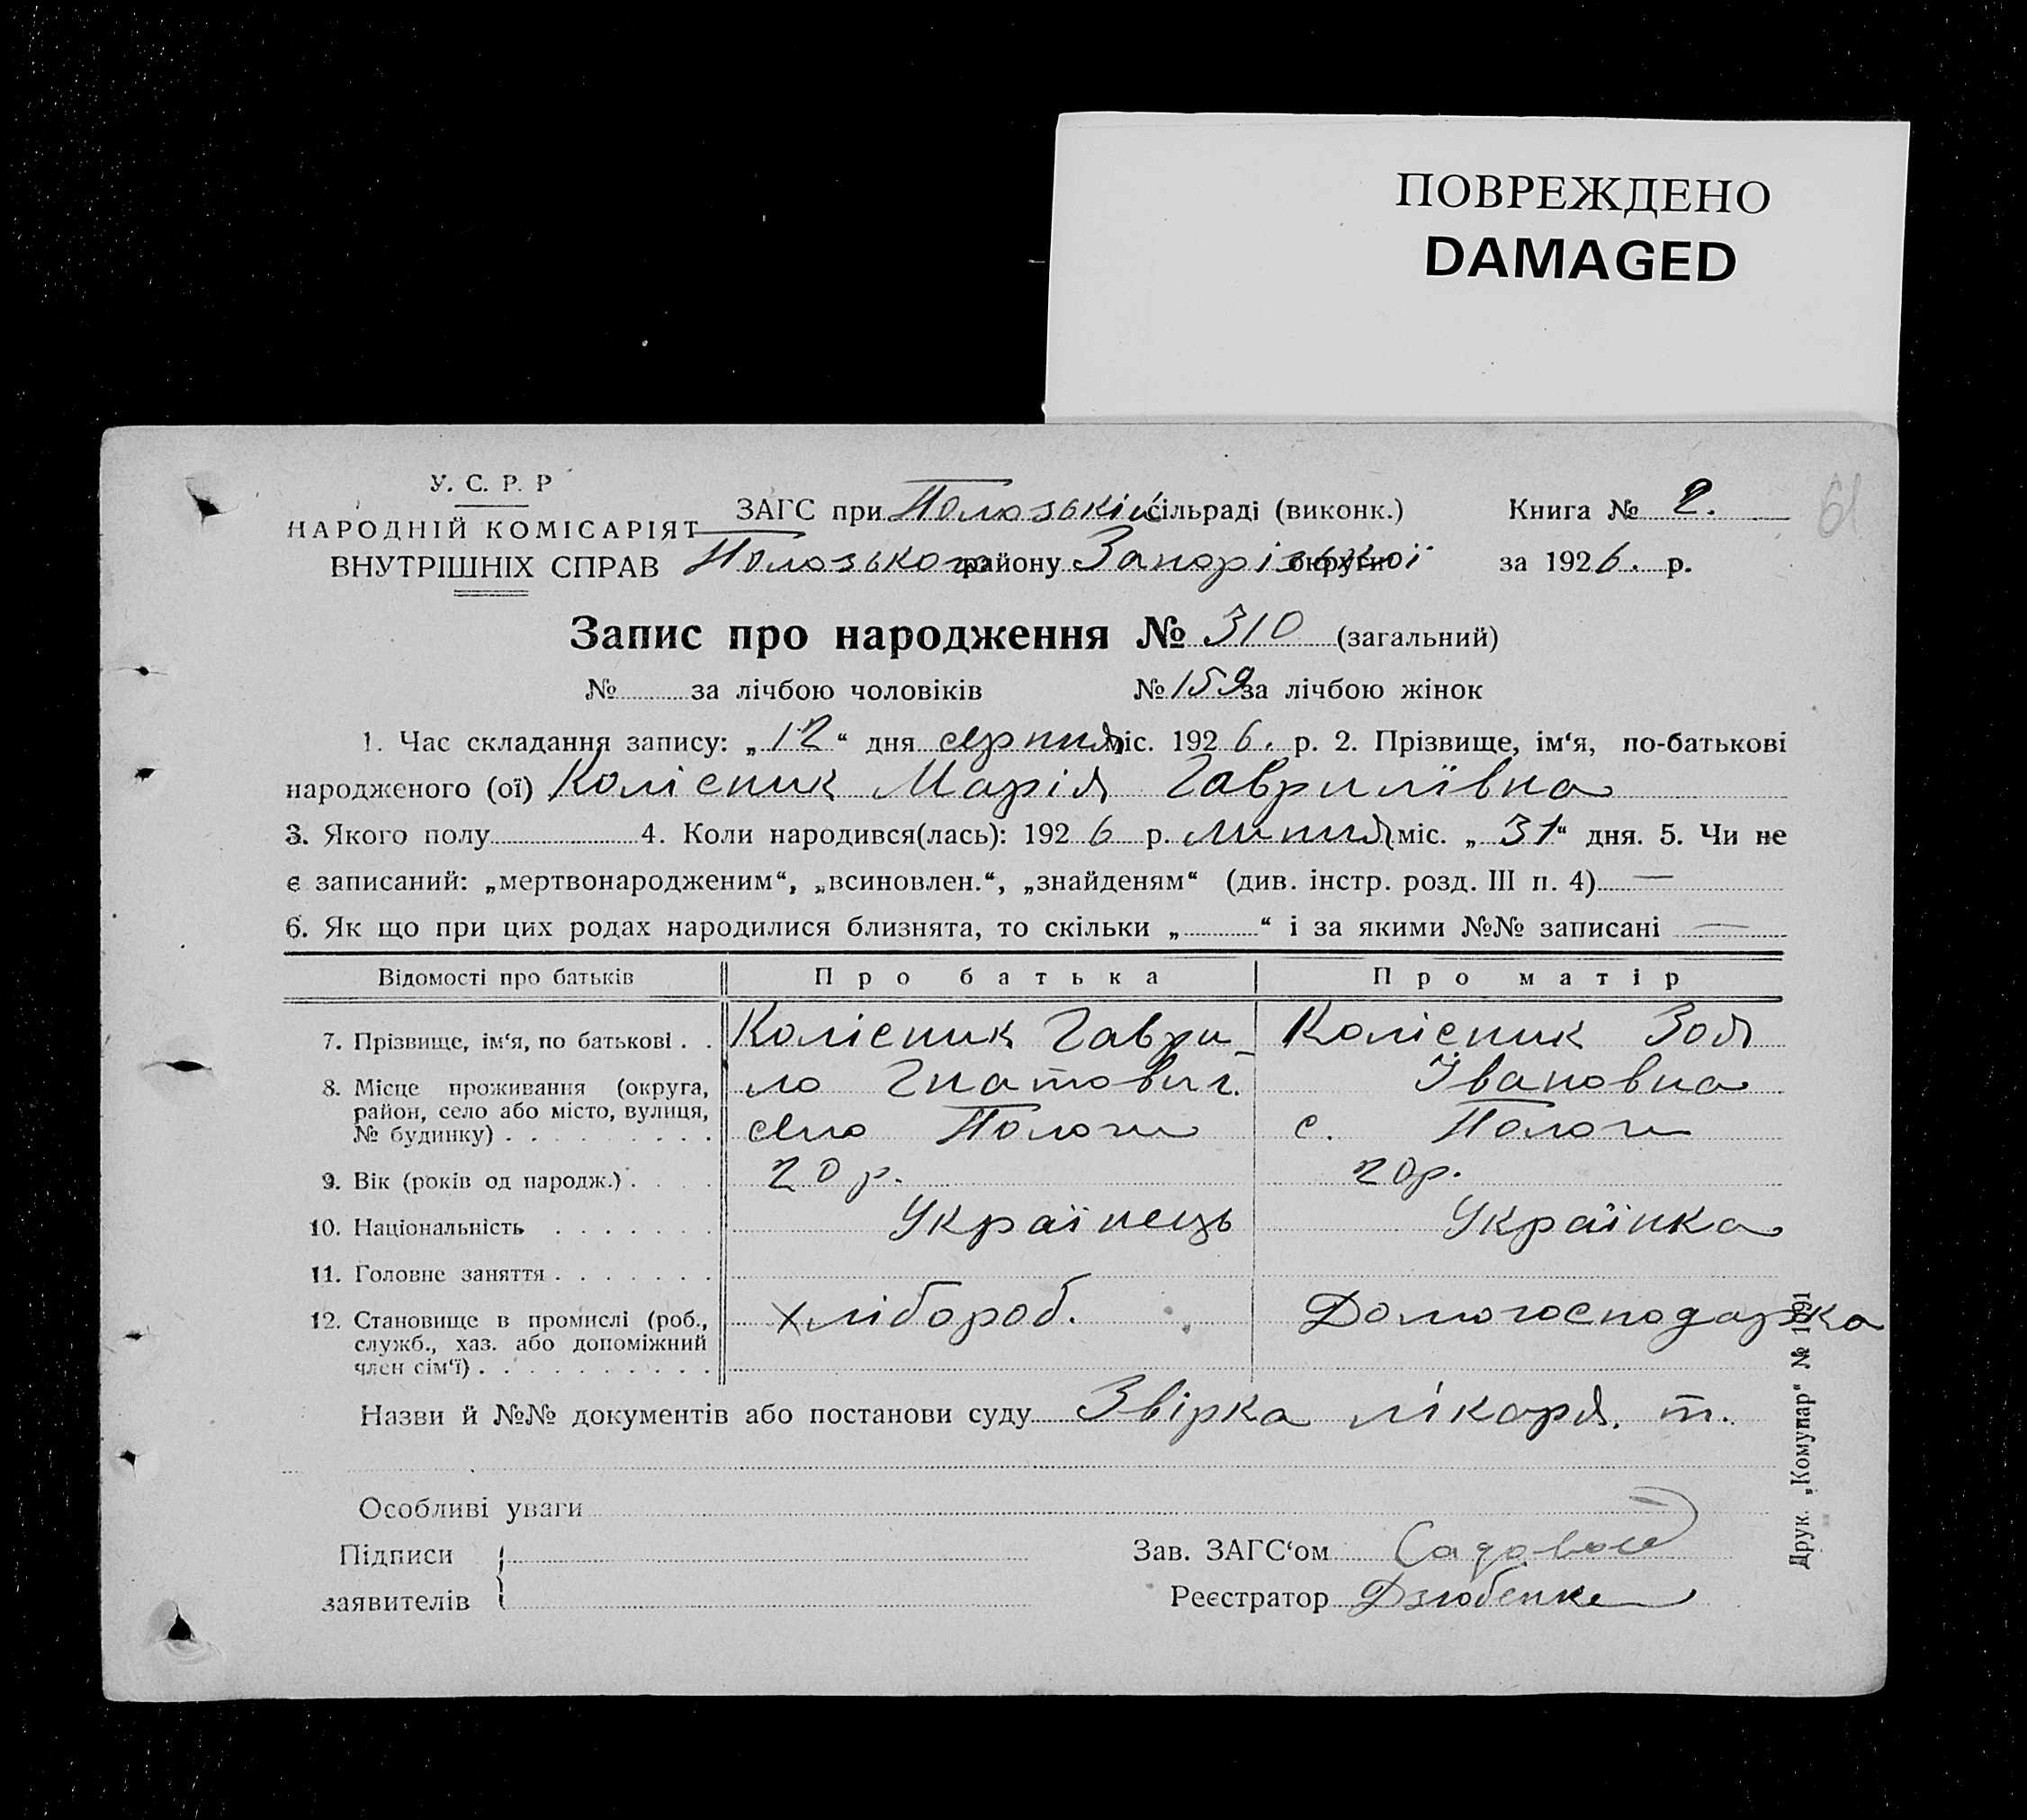 ПОВРЕЖДЕНО
DAMAGED
61
У. С. Р. Р
НАРОДНІЙ КОМІСАРІЯТ
ВНУТРІШНІХ СПРАВ
ЗАГС при Полозькій сільраді (виконк.)
Полозького району Запорізької округи
Книга № 2.
за 1926. р.
Запис про народження № 310 (загальний)
№ за лічбою чоловіків № 159 за лічбою жінок
1. Час складання запису: „12“ дня серпня міс. 1926. р. 2. Прізвище, ім‘я, по-батькові
народженого (ої) Колісник Марія Гаврилівна
3. Якого полу 4. Коли народився(лась): 1926 р. липня міс. „31“ дня. 5. Чи не
є записаний: „мертвонародженим“, „всиновлен.“, „знайденям“ (див. інстр. розд. III п. 4) —
6. Як що при цих родах народилися близнята, то скільки „ “ і за якими №№ записані —
Відомості про батьків Про батька Про матір
7. Прізвище, ім‘я, по батькові . . Колісник Гаври- Колісник Зоя
8. Місце проживання (округа, ло Гнатович. Івановна
район, село або місто, вулиця,
№ будинку) . . . . . . . . . село Пологи с. Пологи
9. Вік (років од народж.) . . . . 20 р. 20 р.
10. Національність . . . . . . . Українець Українка
11. Головне заняття . . . . . . .
12. Становище в промислі (роб., хлібороб. Домогосподарка
служб., хаз. або допоміжний
член сім‘ї) . . . . . . . . . .
Назви й №№ документів або постанови суду Звірка лікаря. т.
Особливі уваги
Підписи
заявителів
Зав. ЗАГС‘ом
Реєстратор Дзюбенко
Друк. „Комунар“ № 1191